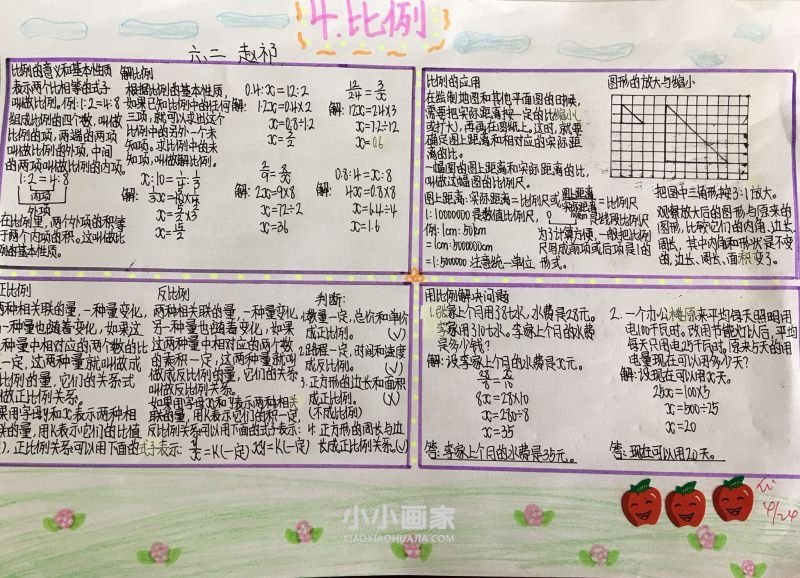 4.比例
六二 赵祁
比例的意义和基本性质
表示两个比相等的式子
叫做比例。例:1:2=4:8
组成比例的四个数,叫做
比例的项,两端的两项
叫做比例的外项,中间
的两项叫做比例的内项。
1:2=4:8
内项
外项
在比例里,两个外项的积等
于两个内项的积。这叫做比
例的基本性质。
解比例
根据比例的基本性质,
如果已知比例中的任何
三项,就可以求出这个
比例中的另外一个未
知项。求比例中的未
知项,叫做解比例。
0.4:x=1.2:2
解: 1.2x=0.4×2
x=0.8÷1.2
x=2/3
12/24=3/x
解: 12x=24×3
x=72÷12
解:
2/9=8/x
解: 2x=9×8
x=72÷2
x=36
0.8:4=x:8
解: 4x=0.8×8
x=6.4÷4
x=1.6
比例的应用
在绘制地图和其他平面图的时候,
需要把实际距离按一定的比缩小
(或扩大),再画在图纸上。这时,就要
确定图上距离和相对应的实际距
离的比。
一幅图的图上距离和实际距离的比,
叫做这幅图的比例尺。
图上距离:实际距离=比例尺或图上距离/实际距离=比例尺
是数值比例尺, 是线段比例尺
例:1cm:50km
=1cm:5000000cm
=1:5000000 注意统一单位
为了计算方便,一般把比例
尺写成前项或后项是1的
形式。
图形的放大与缩小
把图中三角形按3:1放大。
观察放大后的图形与原来的
图形,比较它们的内角、边长、
周长,其中内角和形状是不变
的,边长、周长、面积变了。
正比例
两种相关联的量,一种量变化,
另一种量也随着变化,如果这
两种量中相对应的两个数的比
值一定,这两种量就叫做成
正比例的量,它们的关系
叫做正比例关系。
如果用字母y和x表示两种相
关联的量,用K表示它们的比值
(一定),正比例关系可以用下面的式子表示: y/x=K(一定)
反比例
两种相关联的量,一种量变化,
另一种量也随着变化,如果
这两种量中相对应的两个数
的乘积一定,这两种量就叫
做成反比例的量,它们的关系
叫做反比例关系。
如果用字母x和y表示两种相关
联的量,用K表示它们的积一定,
反比例关系可以用下面的式子表示:
xy=K(一定)
判断:
1.数量一定,总价和单价
成正比例。 (√)
2.路程一定,时间和速度
成反比例。 (√)
3.正方形的边长和面积
成正比例。 (×)
(不成比例)
4.正方形的周长与边
长成正比例关系。(√)
用比例解决问题
1.张家上个月用了8t水,水费是28元。
李家用了10t水。李家上个月的水费
是多少钱?
解:设李家上个月的水费是x元。
28/8=x/10
8x=28×10
x=280÷8
x=35
答:李家上个月的水费是35元。
2.一个办公楼原来平均每天照明用
电100千瓦时。改用节能灯以后,平均
每天只用电25千瓦时。原来5天的用
电量现在可以用多少天?
解:设现在可以用x天。
25x=100×5
x=500÷25
x=20
答:现在可以用20天。
4/24
小小画家
XIAOXIAOHUAJIA.COM